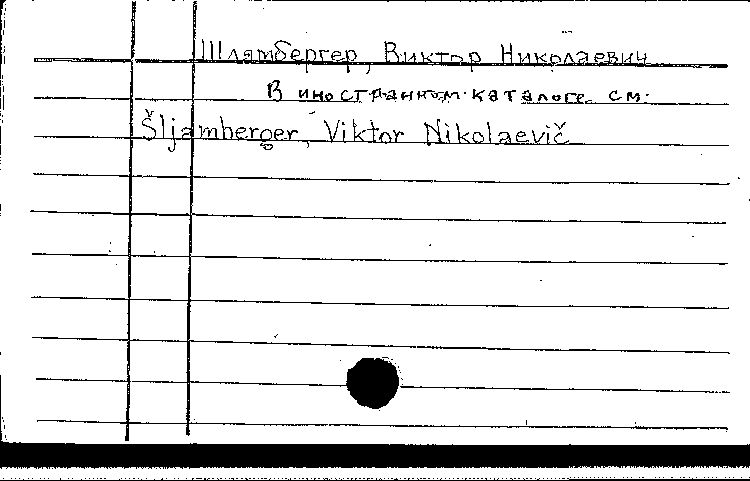 Шлямбергер, Виктор Николаевич
В иностранном каталоге см.
Šljamberger, Viktor Nikolaevič